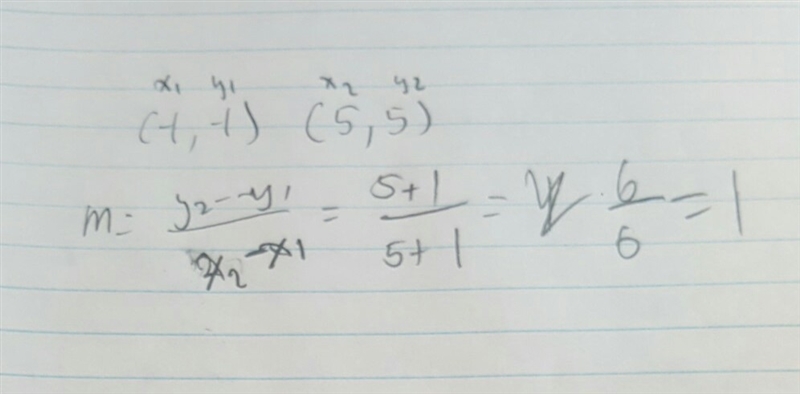 x₁ y₁ x₂ y₂
(-1, -1) (5, 5)
m = y₂ - y₁ / x₂ - x₁ = 5+1 / 5+1 = 6 / 6 = 1